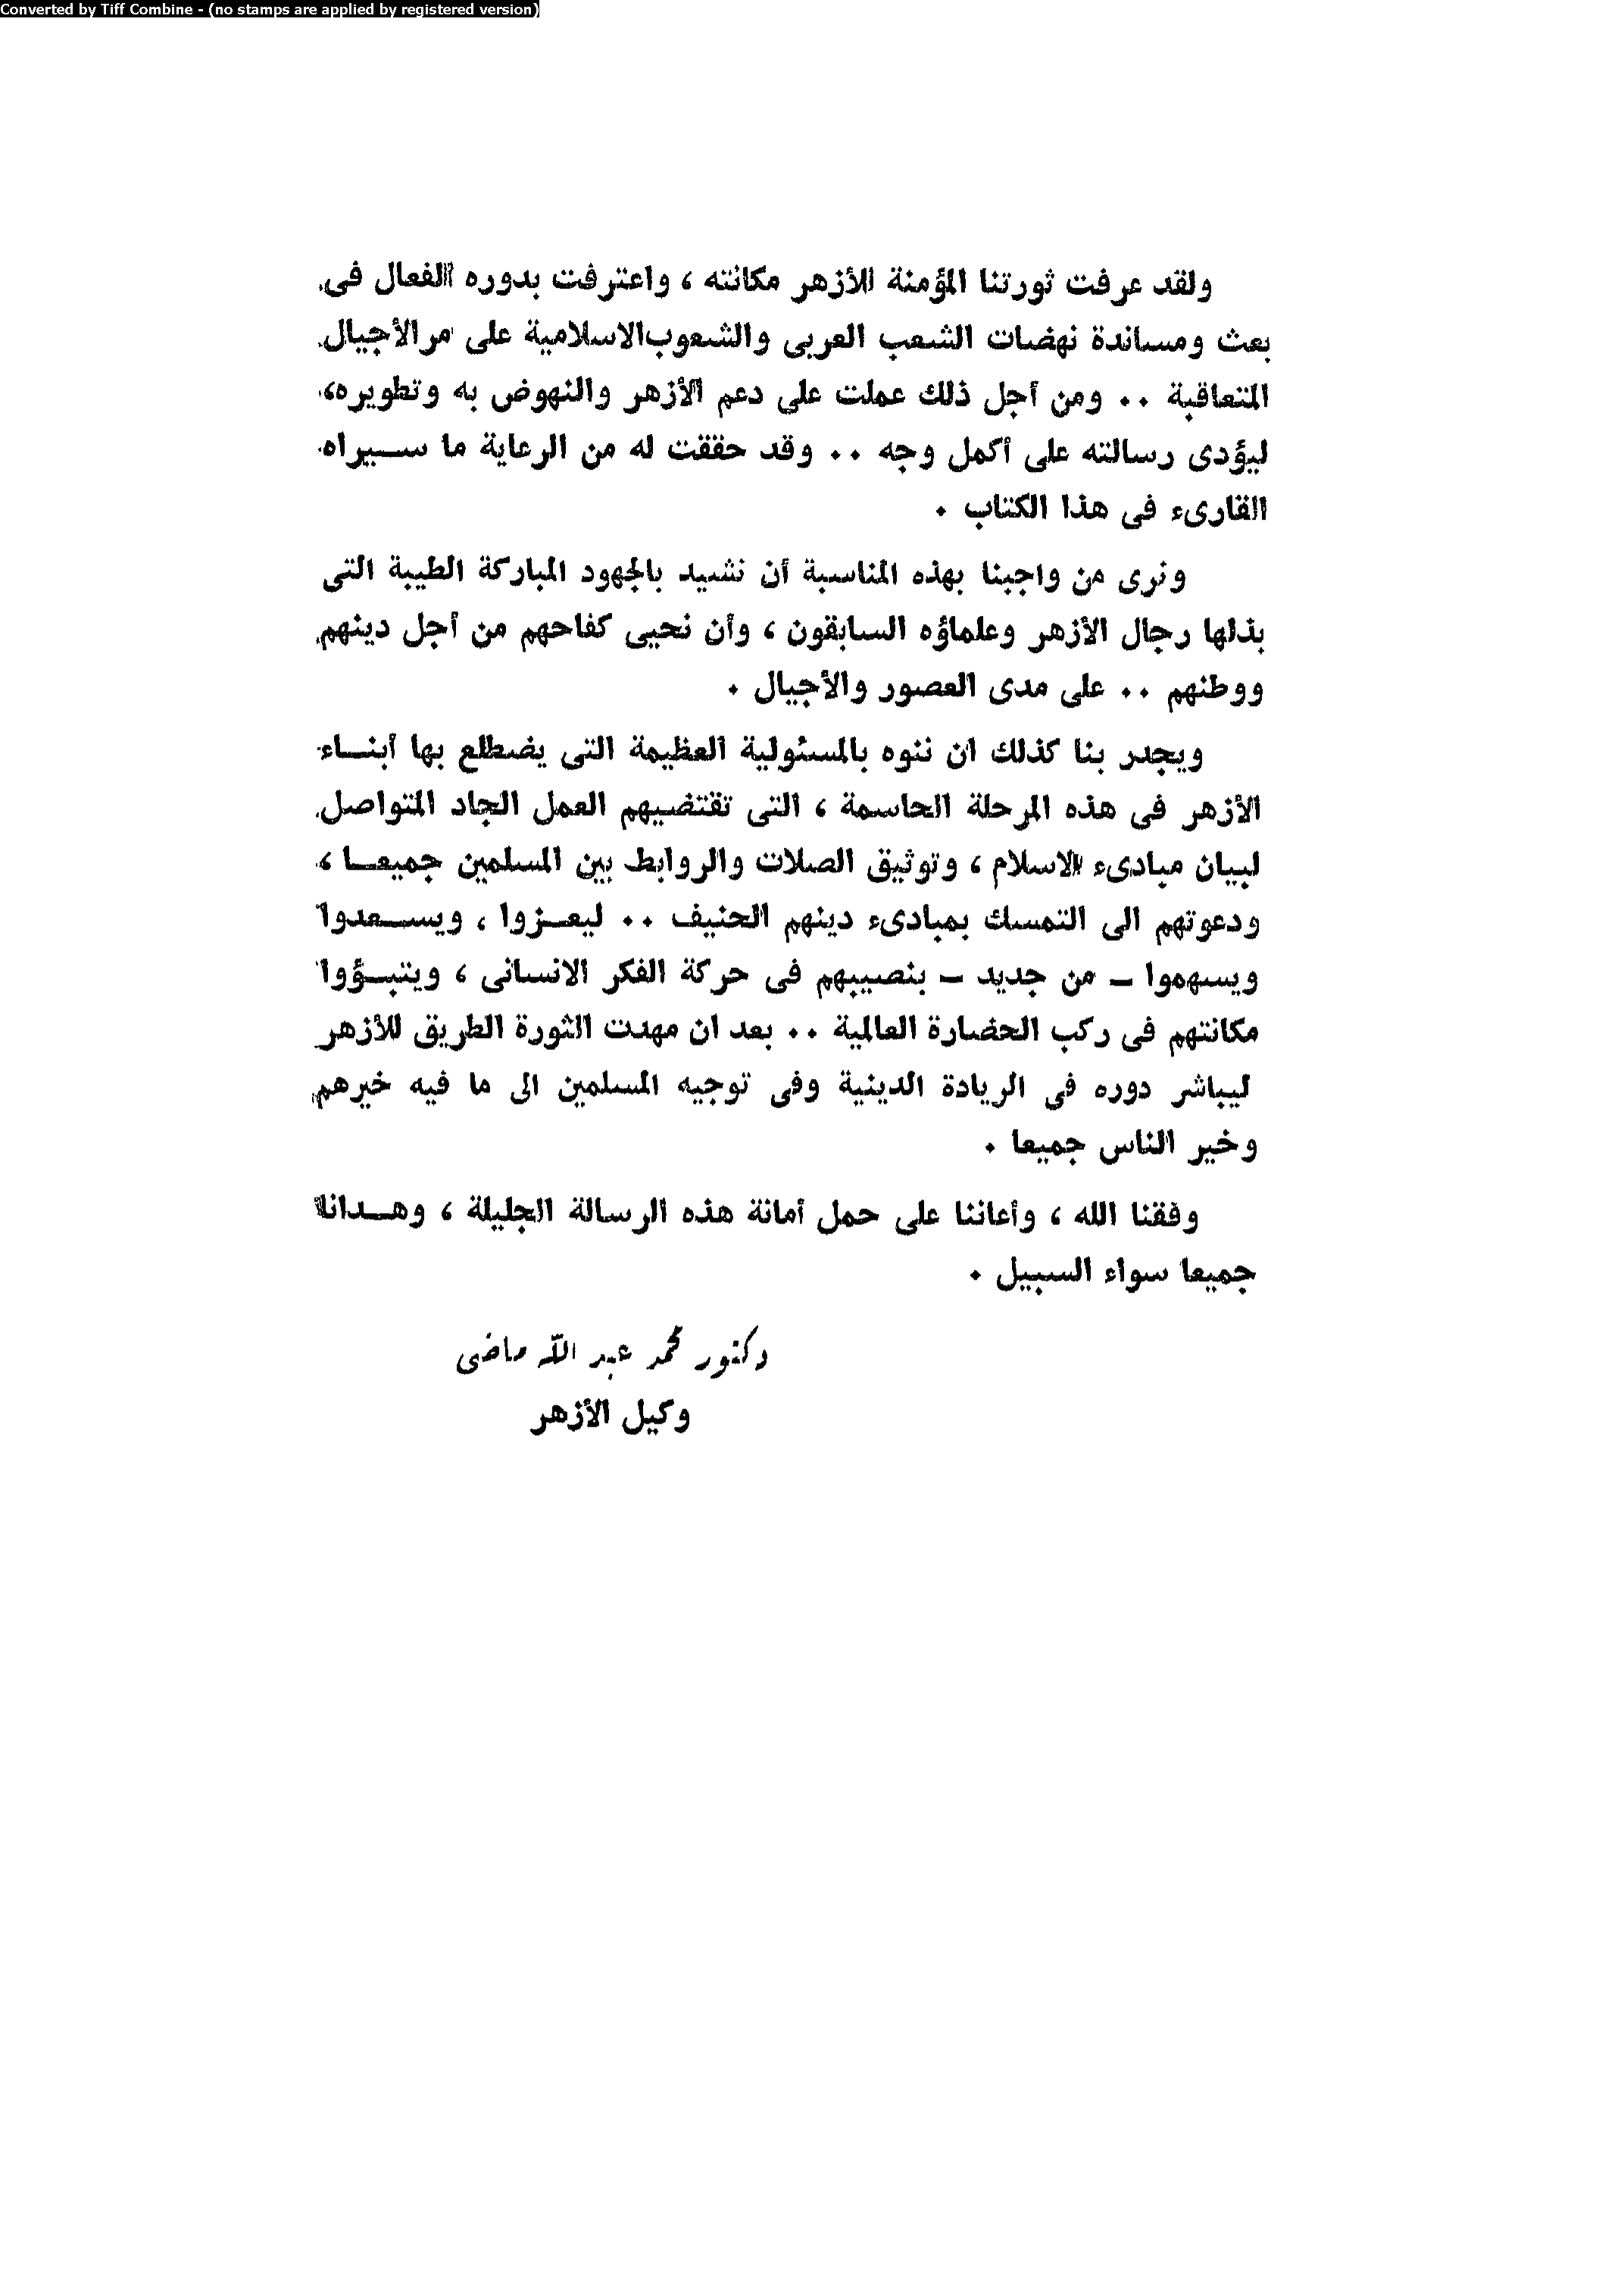 Converted by Tiff Combine - (no stamps are applied by registered version)
ولقد عرفت ثورتنا المؤمنة للأزهر مكانته ، واعترفت بدوره الفعال فى
بعث ومساندة نهضات الشعب العربى والشعوب الاسلامية على مر الأجيال
المتعاقبة ٠٠ ومن أجل ذلك عملت على دعم الأزهر والنهوض به وتطويره،
ليؤدى رسالته على أكمل وجه ٠٠ وقد حققت له من الرعاية ما سيراه
القارىء فى هذا الكتاب ٠
ونرى من واجبنا بهذه المناسبة أن نشيد بالجهود المباركة الطيبة التى
بذلها رجال الأزهر وعلماؤه السابقون ، وأن نحيى كفاحهم من أجل دينهم
ووطنهم ٠٠ على مدى العصور والأجيال ٠
ويجدر بنا كذلك ان ننوه بالمسئولية العظيمة التى يضطلع بها أبناء
الأزهر فى هذه المرحلة الحاسمة ، التى تقتضيهم العمل الجاد المتواصل
لبيان مبادىء الاسلام ، وتوثيق الصلات والروابط بين المسلمين جميعا ،
ودعوتهم الى التمسك بمبادىء دينهم الحنيف ٠٠ ليعزوا ، ويسعدوا
ويسهموا – من جديد – بنصيبهم فى حركة الفكر الانسانى ، ويتبؤوا
مكانتهم فى ركب الحضارة العالمية ٠٠ بعد ان مهدت الثورة الطريق للأزهر
ليباشر دوره فى الريادة الدينية وفى توجيه المسلمين الى ما فيه خيرهم
وخير الناس جميعا ٠
وفقنا الله ، وأعاننا على حمل أمانة هذه الرسالة الجليلة ، وهدانا
جميعا سواء السبيل ٠
دكتور محمد عبد الله ماضى
وكيل الأزهر